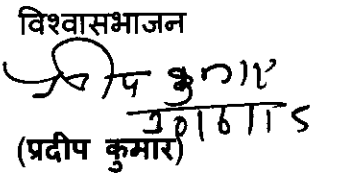 विश्वासभाजन
प्रदीप कुमार
(प्रदीप कुमार)